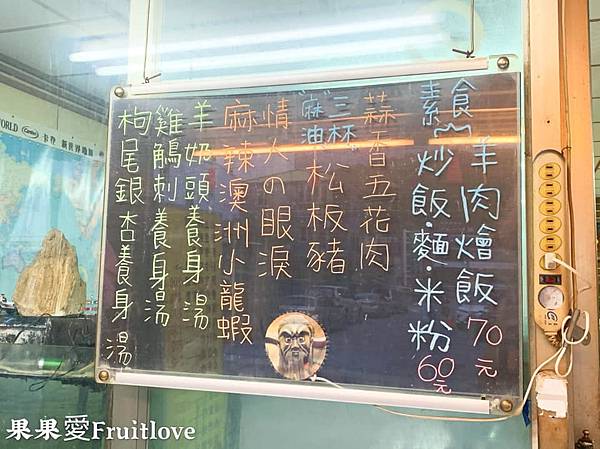 羊肉燴飯 70元
素食~炒飯·麵·米粉 60元
蒜香五花肉
三杯 麻油 松板豬
情人の眼淚
麻辣澳洲小龍蝦
羊奶頭養身湯
雞觴刺養身湯
枸尾銀杏養身湯
果果愛Fruitlove